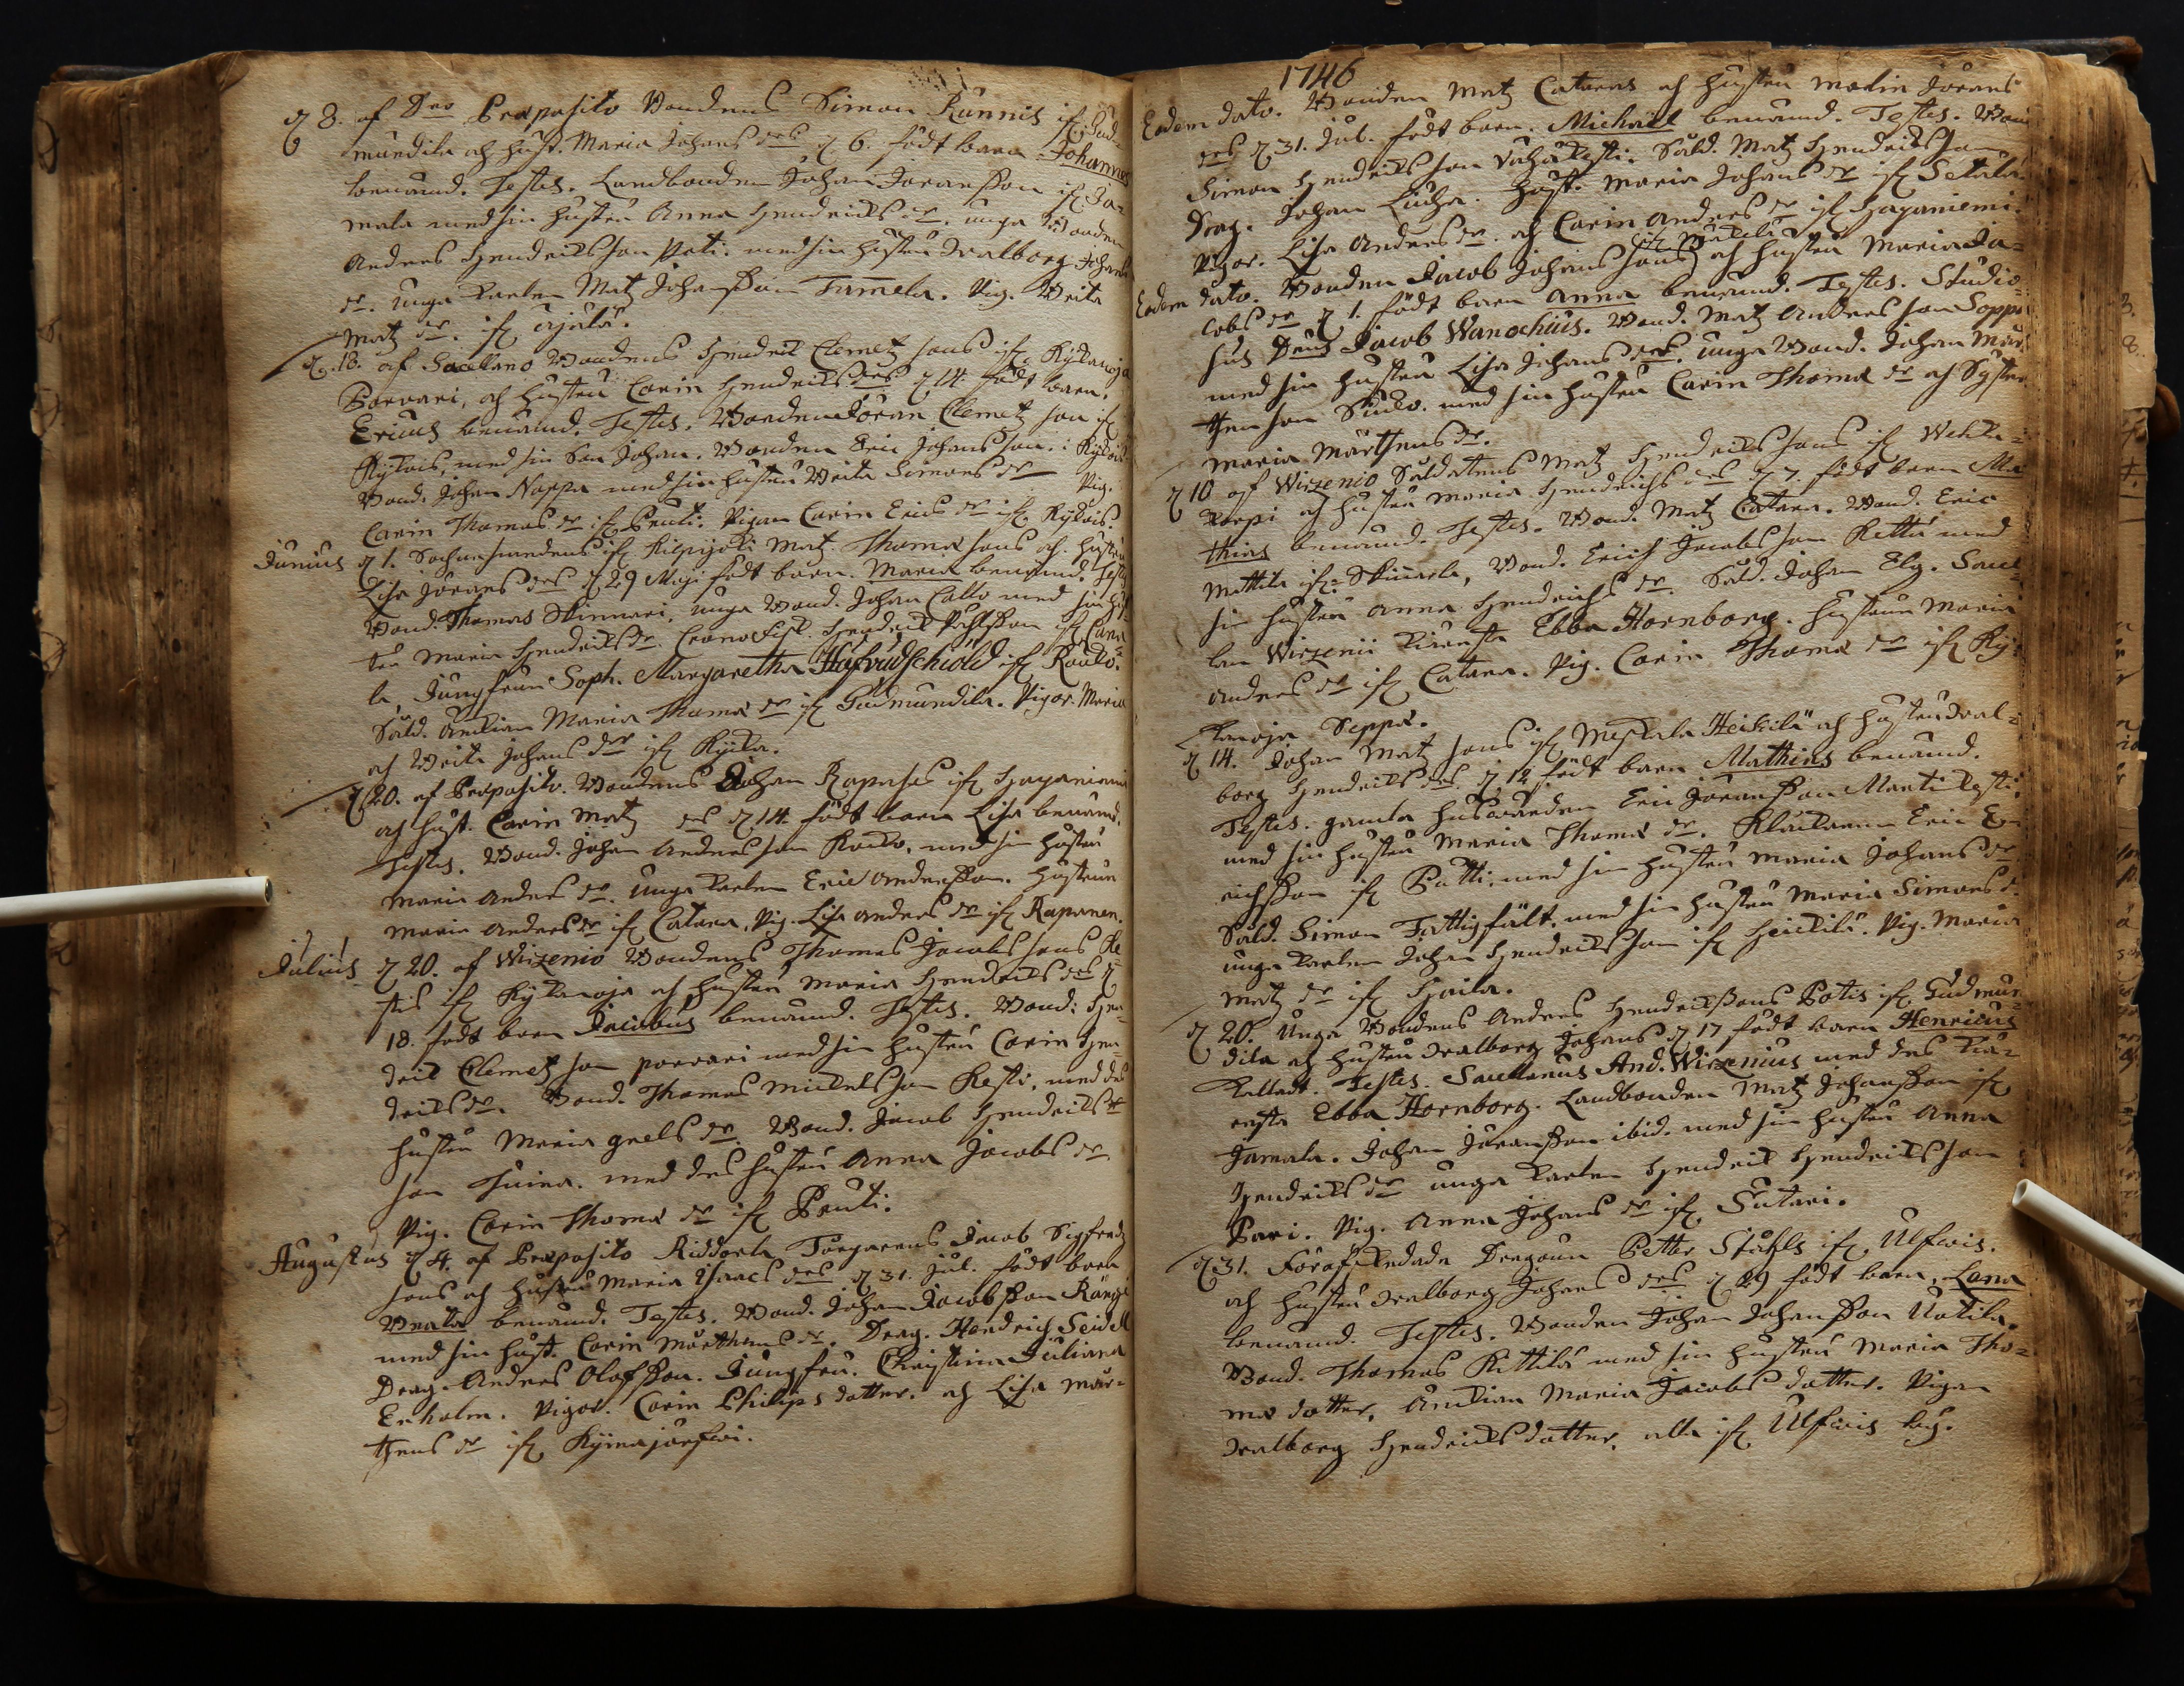 d 8. af Dno Præposito Bondens Simon Runnis ifr. Gud-
mundila och hust. Maria Johans drs d 6. födt barn Johannes
benämnd. Testes. Landbonden Johan Joransson ifr Ja-
mala med sin hustru Anna Hendrichs dr. unga Bonden
Anders Hendrichsson Poti. med sin hustru Walborg Johans
dr. unga karlen Matz Johansson Tamela. Pig. Brita
Matz dr. ifr
d. 18. af Sacellano Bondens Hendrich Clemetz sons ifr. Kykanoja
Porvari, och hustru Carin Hendrichs drs d 14 födt barn.
Ericus benämnd. Testes. Bonden Jöran Clemetz son ifr
Kykois, med sin son Johan. Bonden Eric Johansson. i Kykois
Bond. Johan Noppa med sin hustru Brita Simons dr Pig.
Carin Thomas dr ifr Penti. Pigan Carin Erics dr ifr Kykois.
Junius d 1. Sochnefiendens ifr Kilpijoki Matz Thomæ sons och hustru
Lisa Jörans drs d 29 Maji födt barn. Maria benämnd. Testes
Bond. Thomas Skinnari, unga Bond. Johan Callo med sin hu-
stru Maria Hendrichs dr. Hendrich Påhlsson ifr
la, Jungfrun Soph. Margaretha Hafrudschiöld ifr Rauko.
Sold. Änkian Maria Thomæ dr ifr Gudmundila. Pigor. Maria
och Brita Johans drr ifr Kyka.
d 20. af Præposito. Bondens Johan Rapases ifr Haganiemi
och hust. Carin Matz drs d 14 födt barn Lisa benämnd.
Testes. Bond. Johan Anders son Rauko. med sin hustru
Maria Anders dr. Unga karlen Eric Andersson. hustrun
Maria Anders dr ifr Catara, Pig. Lisa Anders dr ifr Rapanen.
Julius d 20. af Wirzenio Bondens Thomas Jacobs sons Ke-
stis ifr Kykanoja och hustru Maria Hendrichs drs d
18. födt barn Jacobus benämnd. Testes. Bond: Hen-
drich Clemetz son porvari med sin hustru Carin Hen-
drichs dr. Bond. Thomas Michels son Kesti, med des
hustru Maria Greels dr. Bond. Jacob Hendrichs
son med des hustru Anna Jacobs dr
Pig. Carin Thomæ dr ifr Penti.
Augustus d 4. af Præposito Riddare Torparens Jacob Sigfreds
sons och hustru Maria Isaacs drs d 31. Jul. födt barn
Beata benämnd. Testes. Bond. Johan Jacobsson Rängi
med sin hust. Carin Mårthens dr. Drag. Hendrich Seidell
Drag. Anders Olofsson. Jungfru. Christina Juliana
Enholm. Pigor. Carin Philips dotter. och Lisa Mår-
thens dr ifr Kijmajärfwi.
1746
Eodem dato. Bonden Matz Cataras och hustru Malin Jörans
drs d 31. Jul. födt barn. Michaël benämnd. Testes. Bond
Simon Hendrichsson Vähä Kesti. Sold. Matz Hendrichsson
Drag. Johan Hust. Maria Johans dr ifr Sekula.
Pigor. Lisa Anders dr. och Carin Anders dr ifr Haganiemi.
Eodem dato. Bonden Jacob Johans sons ifr och hustru Maria Ja-
cobs dr d 1. födt barn Anna benämnd. Testes. Studio-
sus Dns Jacob Wanochius. Bond. Matz Anders son Soppi
med sin hustru Lisa Johans drs. unga Bond. Johan Mår-
thens son med sin hustru Carin Thomæ dr och Syster
Maria Mårthens dr.
d 10 af Wirzenio Soldatens Matz Hendrichs sons ifr Wehka-
korpi och hustru Maria Hendrichs drs d 7. födt barn Ma-
thias benämnd. Testes. Bond. Matz Catara. Bond. Eric
Mattila ifr. Skinnarla, Bond. Erich Jacobs son Kettu med
sin hustru Anna Hendrichs dr. Sold. Johan Elg. Sacel-
lan Wirzenii Käresta Ebba Hornborg. Hustrun Maria
Anders dr ifr Catara. Pig. Carin Thomæ dr ifr Ky-
kanoja Seppä.
d 14. Johan Matz sons ifr Meskala Heikilä och hustru Wal-
borg Hendrichs drs d 12 födt barn Mathias benämnd.
Testes. gamla husbonden Eric Joransson Martikesti.
med sin hustru Maria Thomæ dr. Klockaren Eric Er-
ichsson ifr Putti, med sin hustru Maria Johans dr
Sold. Simon Fattigfält. med sin hustru Maria Simons d.
unga karlen Johan Hendrichsson ifr Heickilä. Pig. Maria
Matz dr ifr Haila.
d 20. Unga Bondens Anders Hendrichssons Potis ifr. Gudmun-
dila och hustru Walborg Johans d 17 födt barn Henricus
kallat. Testes. Sacellanus And. Wirzenius med des Kiä-
resta Ebba Hornborg. Landbonden Matz Johansson ifr
Jamala. Johan Joransson ibid. med sin hustru Anna
Hendrichs dr unga karlen Hendrich Hendrichsson
Pari. Pig. Anna Johans dr ifr Sutari.
d 31. Förafskedade Dragoun Petter Ståhls ifr. Ulfwis.
och hustru Walborg Johans drs d 29 födt barn. Lena
benämnd. Testes. Bonden Johan Johansson Uotila.
Bond. Thomas Kittilä med sin hustru Maria Tho-
mæ dotter, Änkian Maria Jacobs dotter. Pigan
Walborg Hendrichs dotter. alla ifr Ulfwis by.